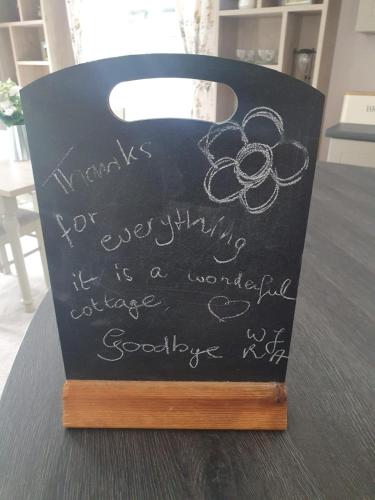 Thanks
for everything
it is a wonderful
cottage.
Goodbye W J
R A